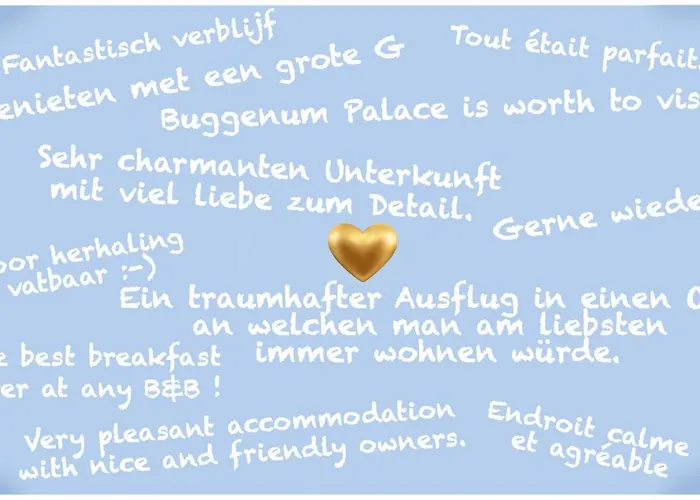 Fantastisch verblijf
Tout était parfait
enieten met een grote G
Buggenum Palace is worth to vis
Sehr charmanten Unterkunft
mit viel liebe zum Detail.
Gerne wiede
oor herhaling
vatbaar :-)
Ein traumhafter Ausflug in einen O
an welchen man am liebsten
immer wohnen würde.
e best breakfast
er at any B&B !
Very pleasant accommodation
with nice and friendly owners.
Endroit calme
et agréable